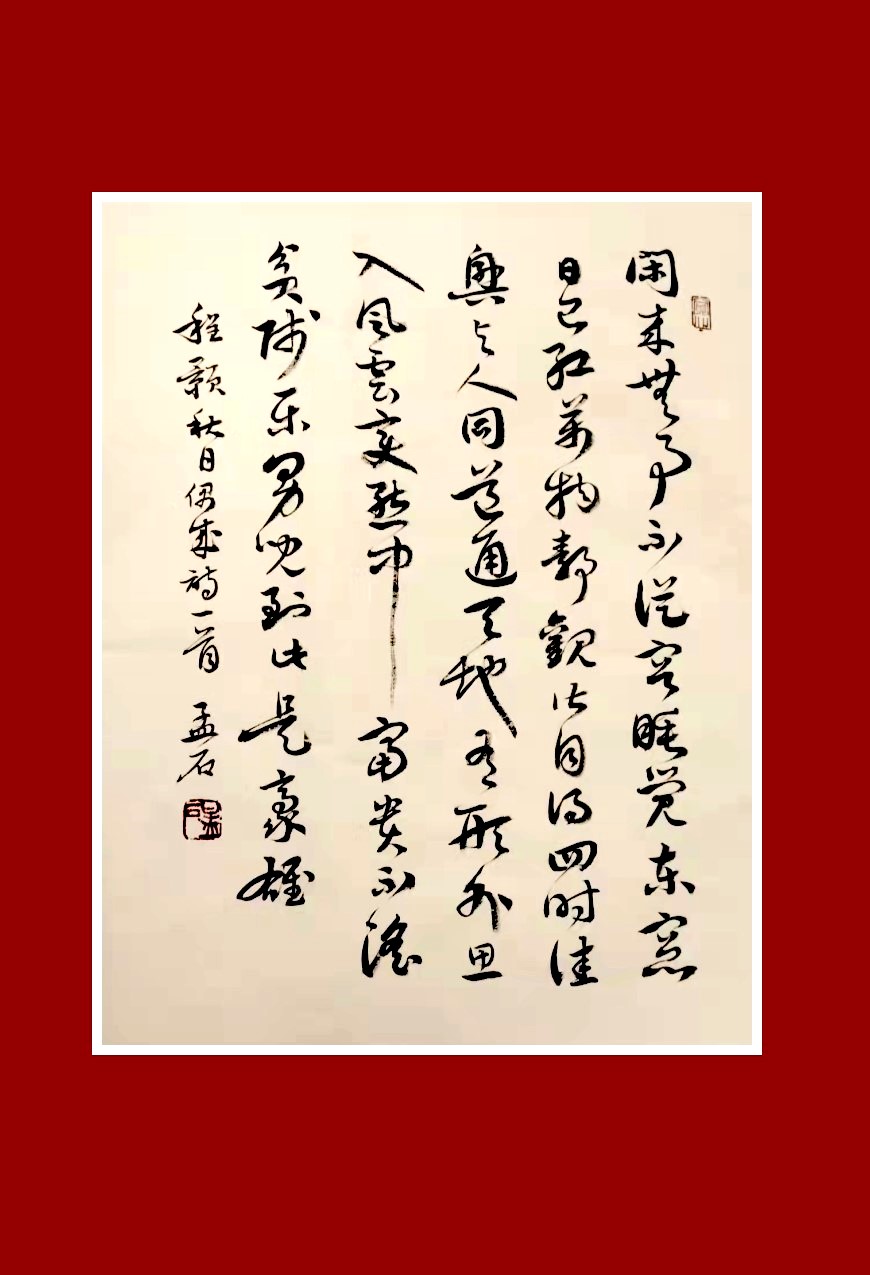 閑来無事不從容睡觉东窓
日已红萬物静觀皆自得四时佳
興与人同道通天地有形外思
入风雲变態中富贵不淫
贫贱乐男儿到此是豪雄
程颢秋日偶成诗一首 孟石